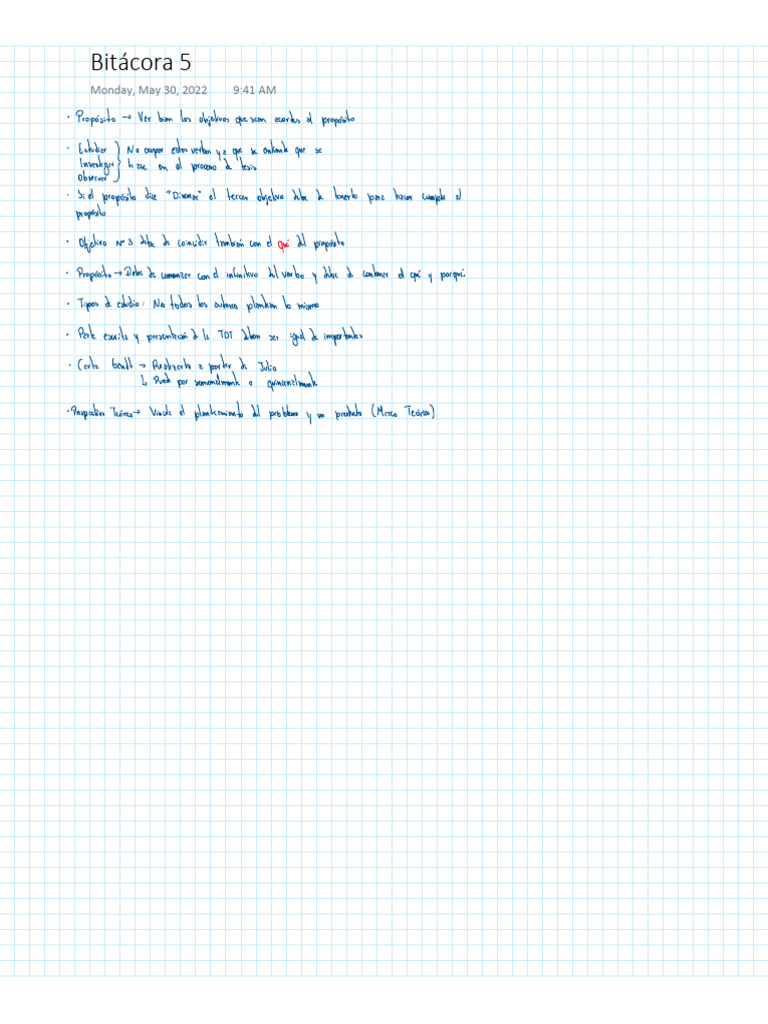 Bitácora 5
Monday, May 30, 2022 9:41 AM
· Propósito → Ver bien los objetivos que sean acordes al propósito
· Estudiar } No ocupar estos verbos ya que se entiende que se
Investigar } hace en el proceso de tesis
observar }
· Si el propósito dice "Diseñar" el tercer objetivo debe de tenerlo para hacer cumplir el
propósito
· Objetivo N° 3 debe de coincidir también con el qué del propósito
· Propósito → Debe de comenzar con el infinitivo del verbo y debe de contener el qué y porqué.
· Tipos de estudio: No todos los autores plantean lo mismo
· Parte escrita y presentación de la TDT deben ser igual de importantes
· Carta → a partir de Julio
↳ Puede por semanalmente o quincenalmente
· Perspectiva Teórica → Vincula el planteamiento del problema y un producto (Marco Teórico)